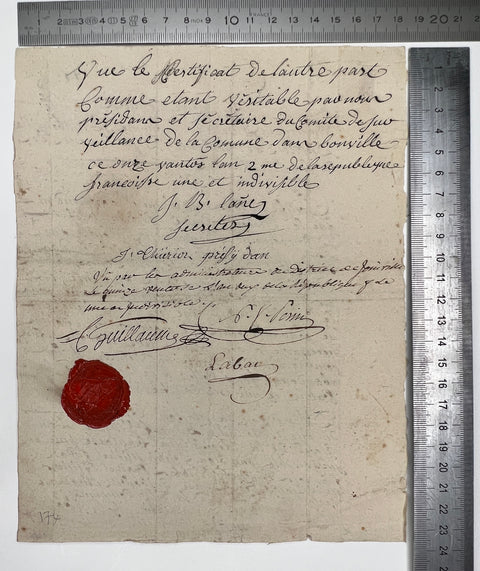 Vue le Certificat de lautre part
Comme etant veritable par nous
présidans et secrétaire du Comité de sur
veillance de la Comune danbonville
ce onze vantos lan 2 me de la republique
francoisse une et indivisible
J. B. Cañe
secreter
J. Thierion présydan
Vu par les administrateurs du district de Joinville
le quinze
une et indivisible
Guillaume
Labar
174
0 1 2 3 4 5 6 7 8 9 10 11 12 13 14 15 16 17 18 19 20 21
FRANCE
1 2 3 4 5 6 7 8 9 10 11 12 13 14 15 16 17 18 19 20 21 22 23 24